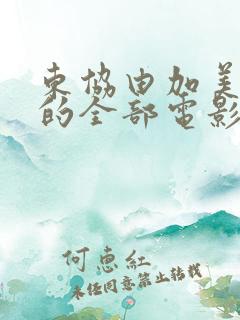 東協由加美
的全部電影
何惠紅
未经同意禁止转载